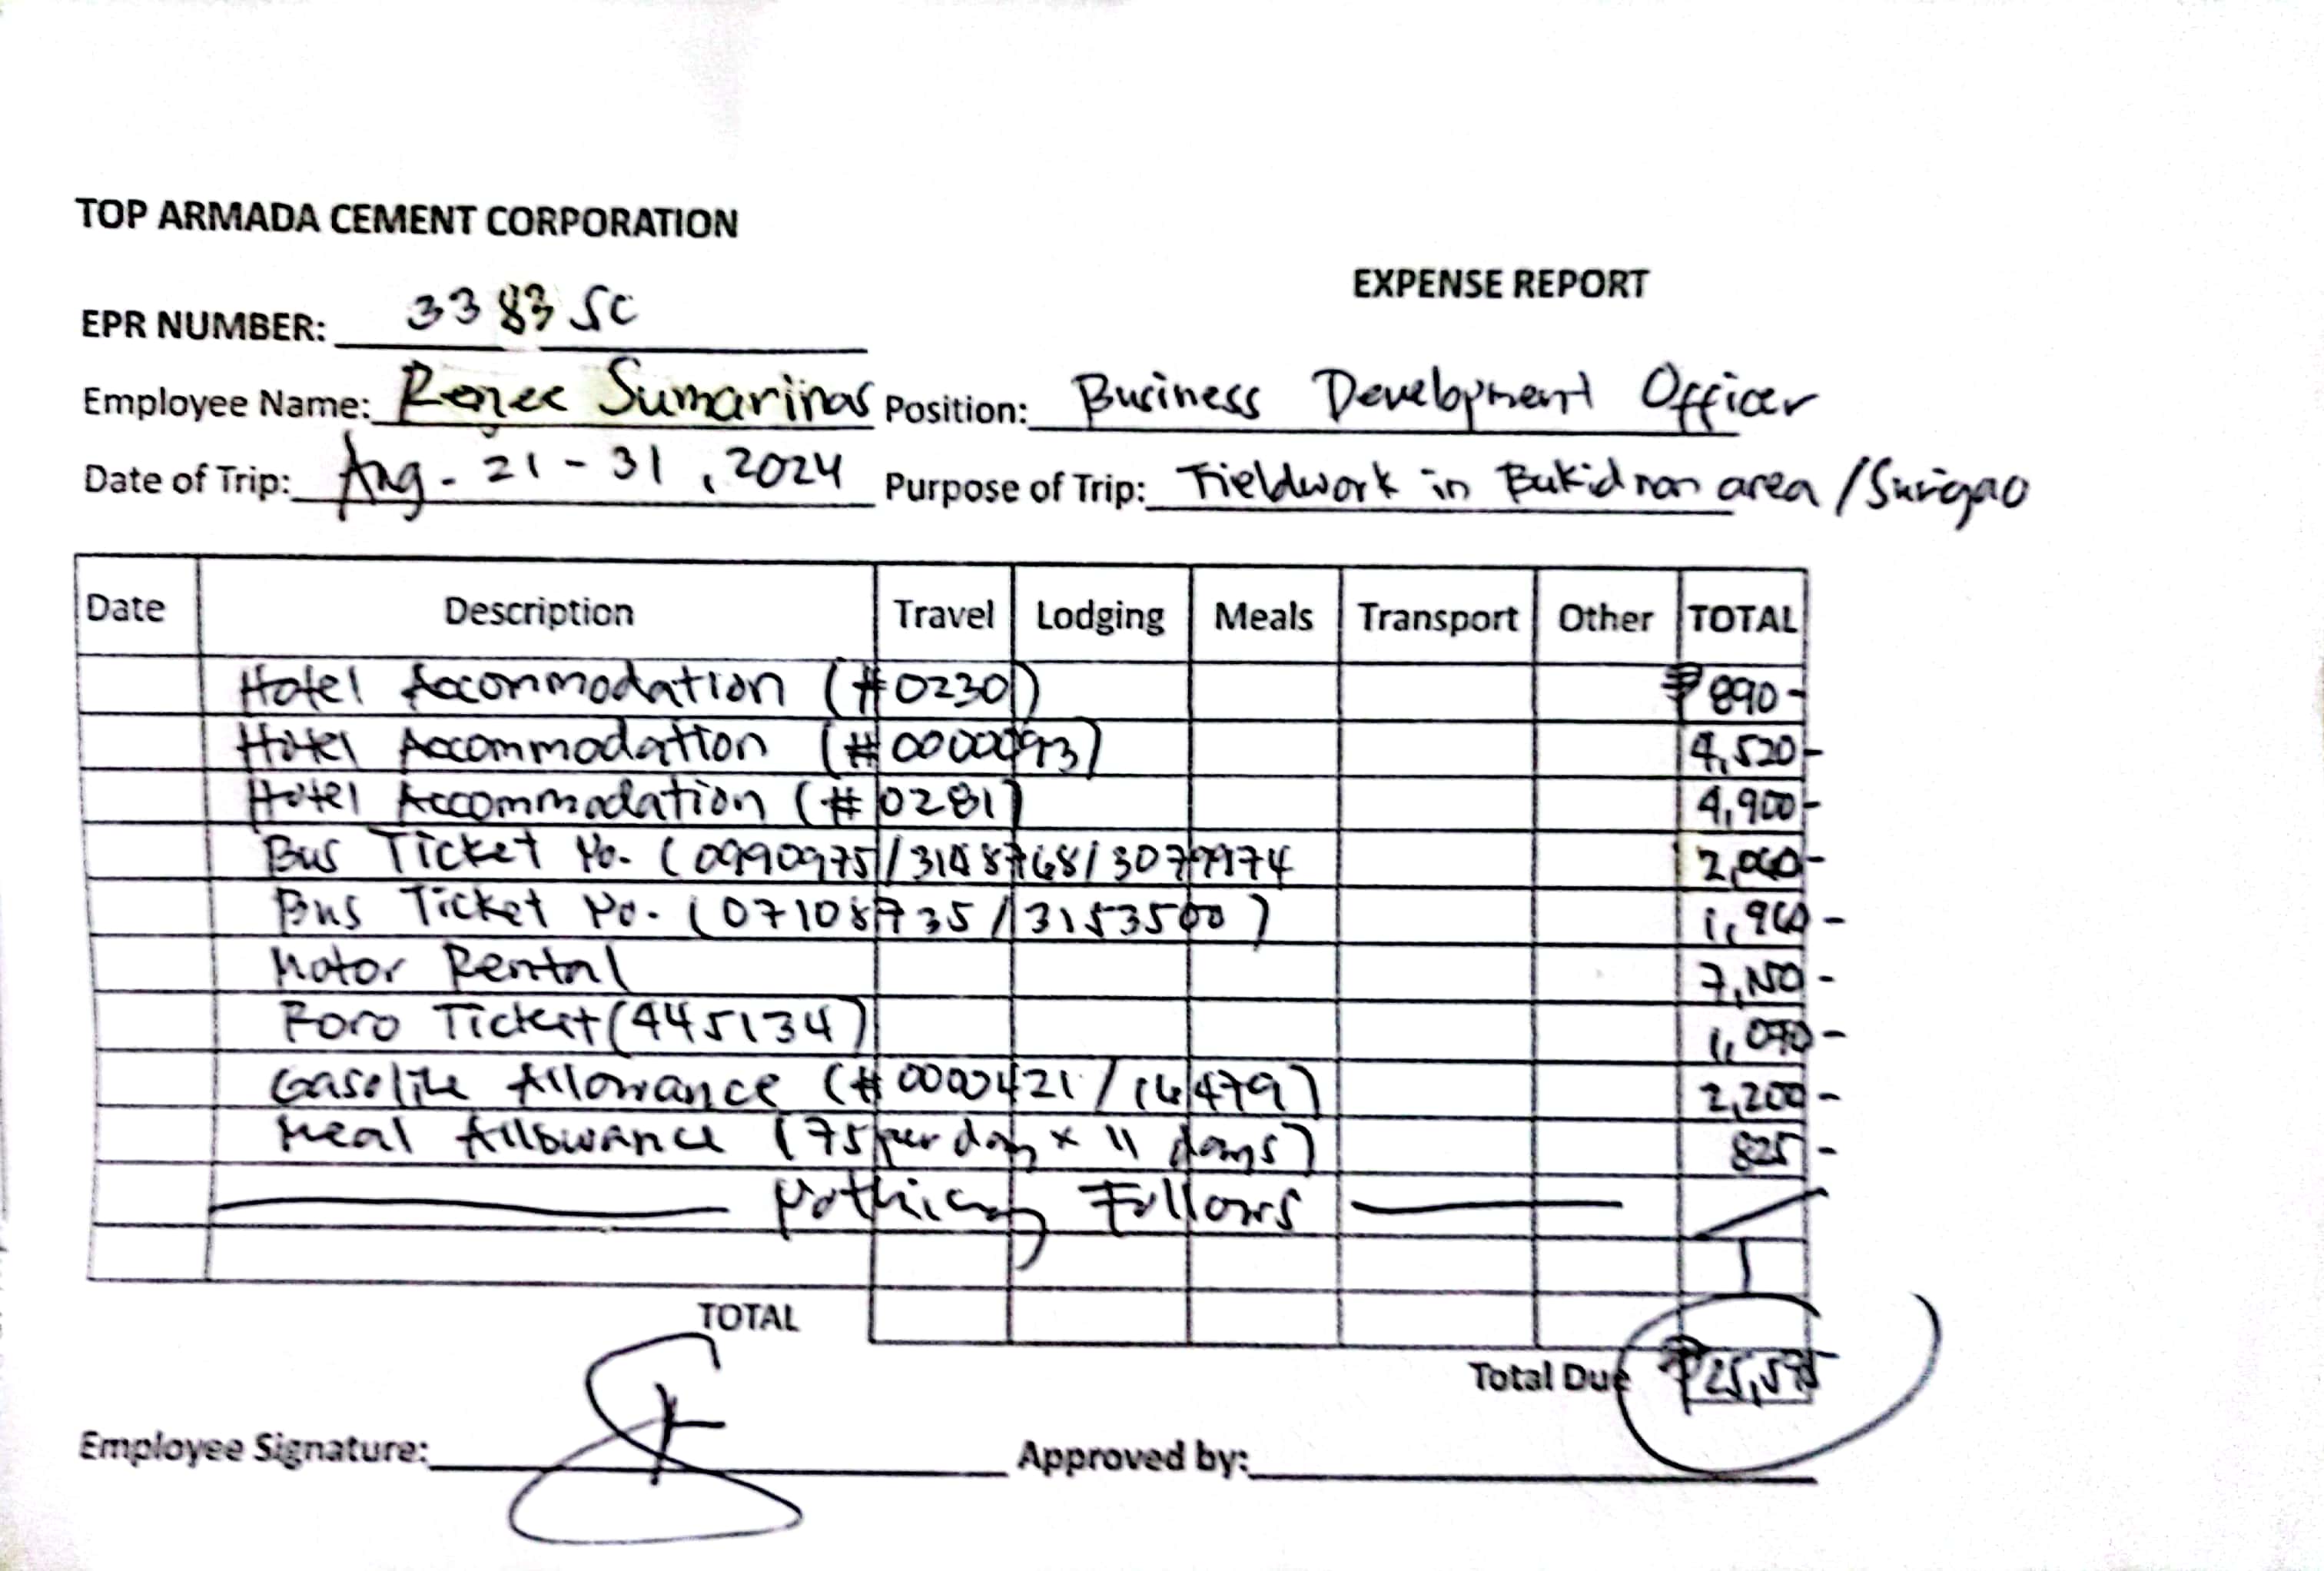 TOP ARMADA CEMENT CORPORATION
EXPENSE REPORT
EPR NUMBER: 3383 SC
Employee Name: Renee Sumarinas Position: Business Development Officer
Date of Trip: Aug. 21 - 31, 2024 Purpose of Trip: Fieldwork in Bukidnon area / Surigao
Date Description Travel Lodging Meals Transport Other TOTAL
Hotel Accommodation (#0230) ₱890-
Hotel Accommodation (#0000093) 4,520-
Hotel Accommodation (#0281) 4,900-
Bus Ticket No. (0990975/3148768/3079974 2,060-
Bus Ticket No. (07108735/3153500) 1,960-
Motor Rental 7,150-
Roro Ticket (445134) 1,070-
Gasoline Allowance (#0000421/16479) 2,200-
Meal Allowance (75 per day x 11 days) 825-
Nothing Follows
TOTAL
Total Due ₱25,575
Employee Signature: Approved by: